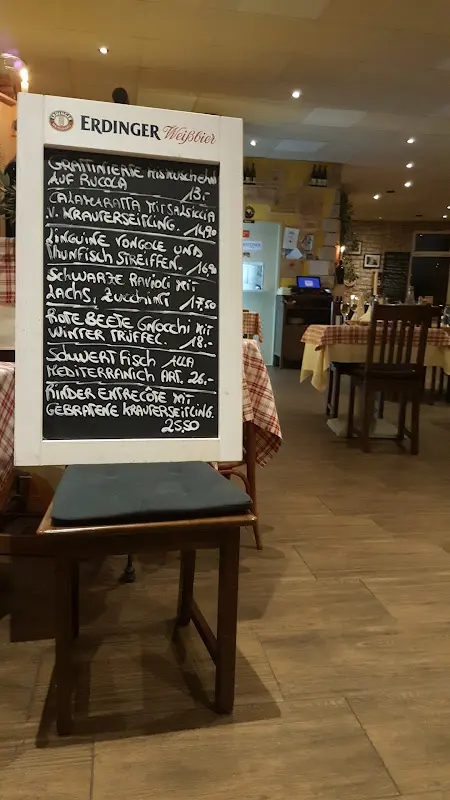 ERDINGER Weißbier
GRATTINIERTE MIESMUSCHELN
AUF RUCOLA 13.-
CALAMARATA MIT SALSICCIA
U. KRAUTERSEITLING. 14,90
LINGUINE VONGOLE UND
THUNFISCH STREIFFEN. 16,90
SCHWARZE RAVIOLI MIT
LACHS, ZUCCHINI 17,50
ROTE BEETE GNOCCHI MIT
WINTER TRÜFFEL. 18.-
SCHWERTFISCH ALLA
MEDITERRANICH ART. 26.-
RINDER ENTRECÔTE MIT
GEBRATENE KRAUTERSEITLING.
25,50